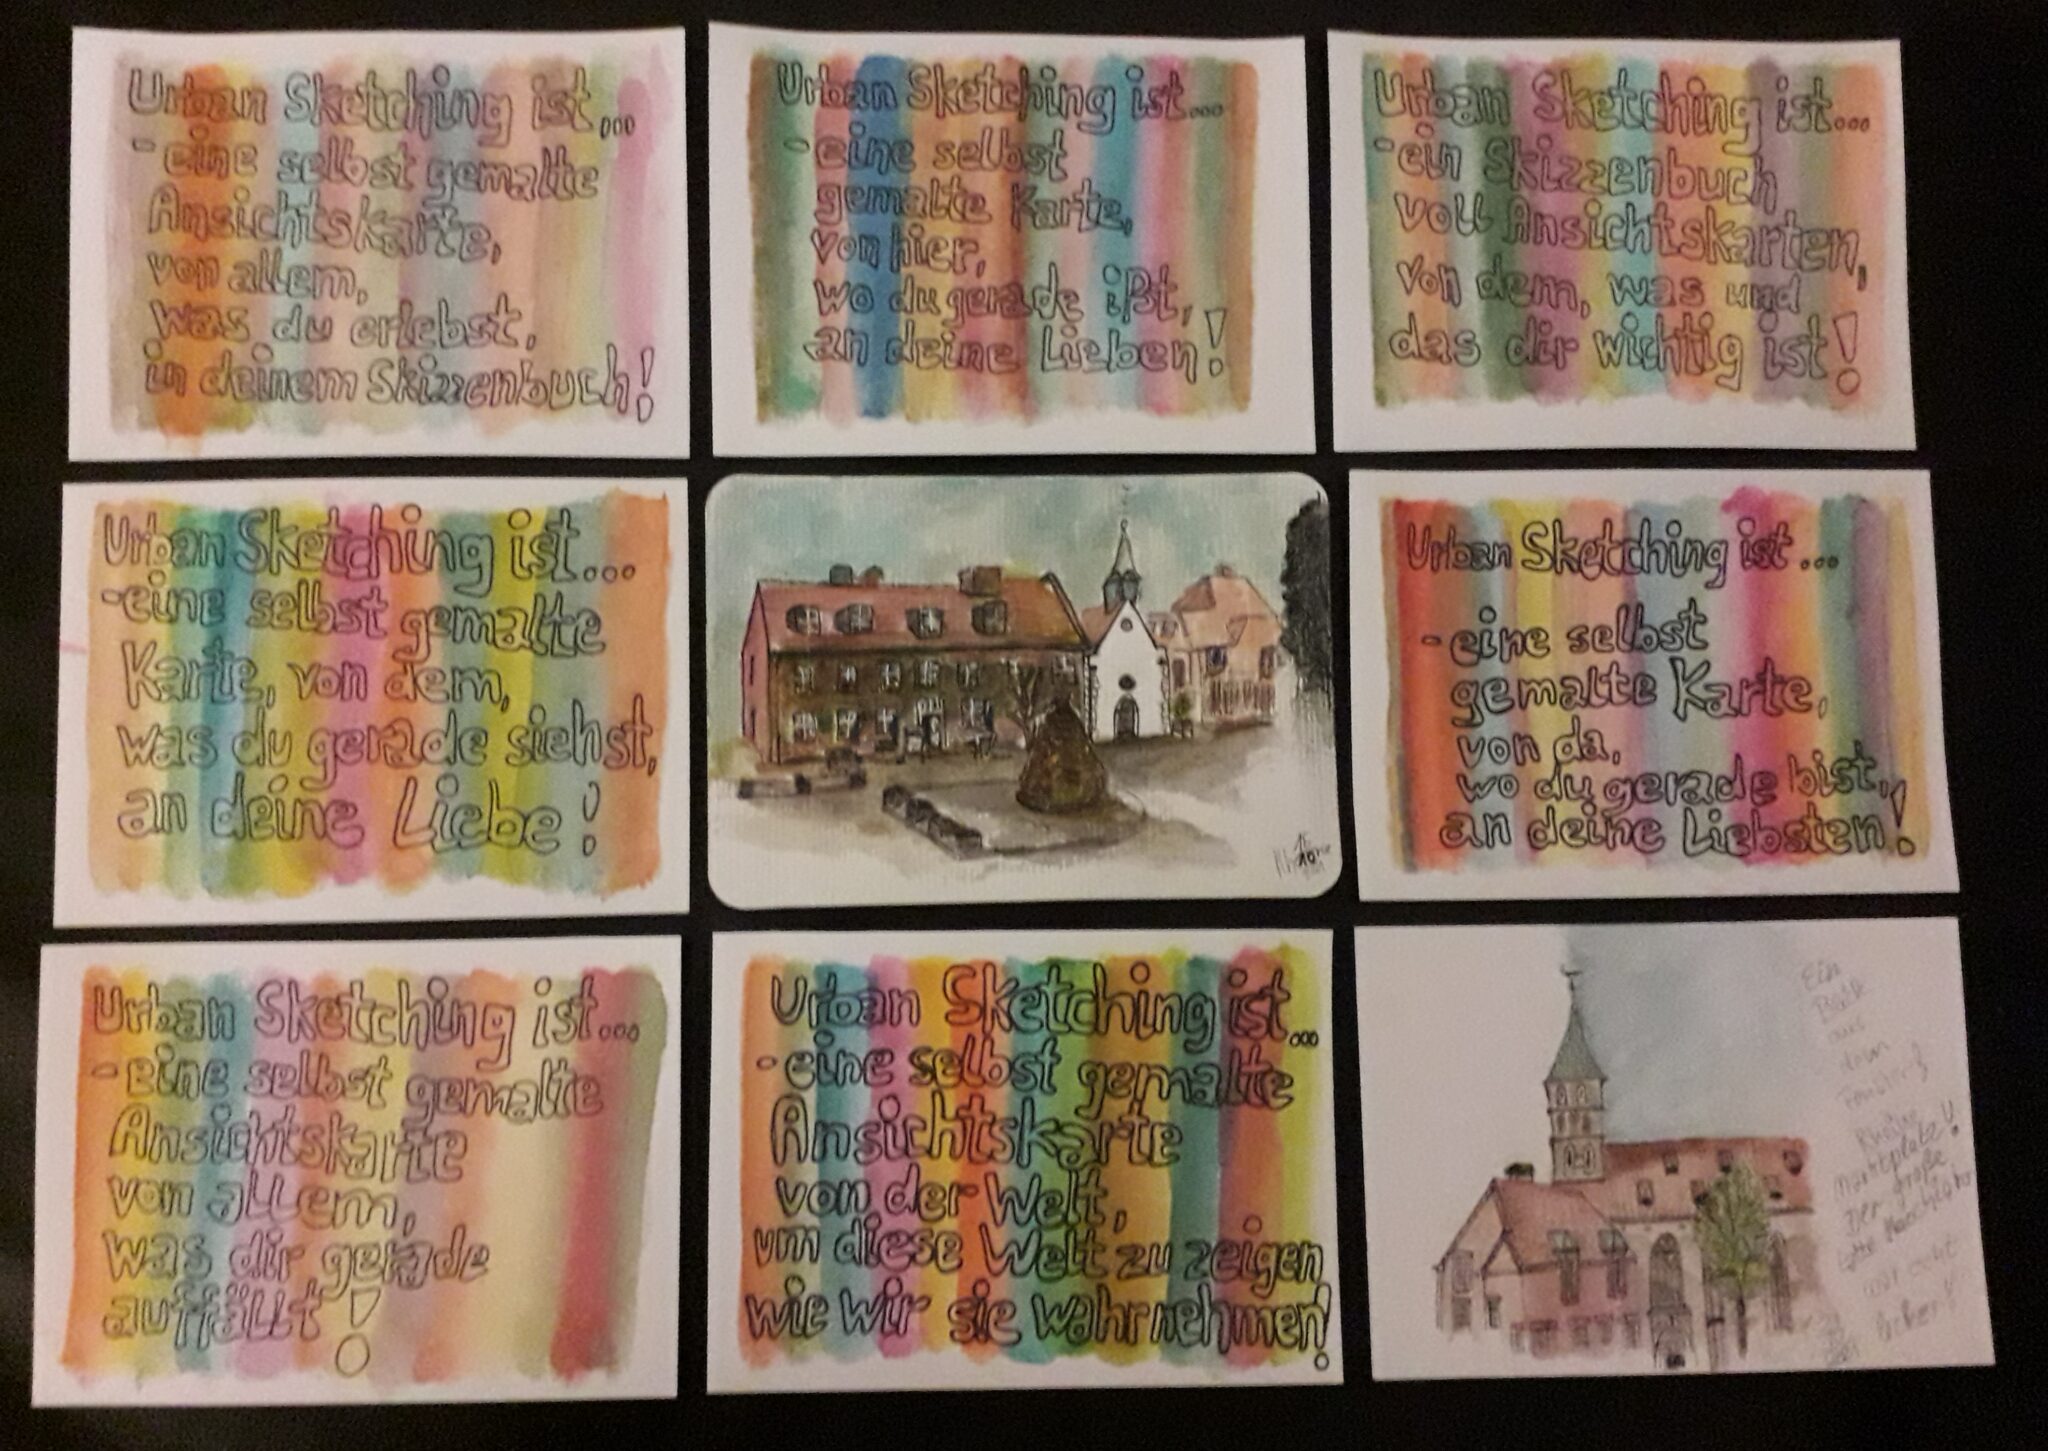 Urban Sketching ist...
- eine selbst gemalte
Ansichtskarte,
von allem,
was du erlebst,
in deinem Skizzenbuch!
Urban Sketching ist...
- eine selbst
gemalte Karte,
von hier,
wo du gerade ißt,
an deine Lieben!
Urban Sketching ist...
- ein Skizzenbuch
voll Ansichtskarten,
von dem, was und
das dir wichtig ist!
Urban Sketching ist...
- eine selbst gemalte
Karte, von dem,
was du gerade siehst,
an deine Liebe!
Urban Sketching ist...
- eine selbst
gemalte Karte,
von da,
wo du gerade bist,
an deine Liebsten!
Urban Sketching ist...
- eine selbst gemalte
Ansichtskarte
von allem,
was dir gerade
auffällt!
Urban Sketching ist...
- eine selbst gemalte
Ansichtskarte
von der Welt,
um diese Welt zu zeigen
wie wir sie wahrnehmen!
Ein
aus
dem
Marktplatz!
Der große